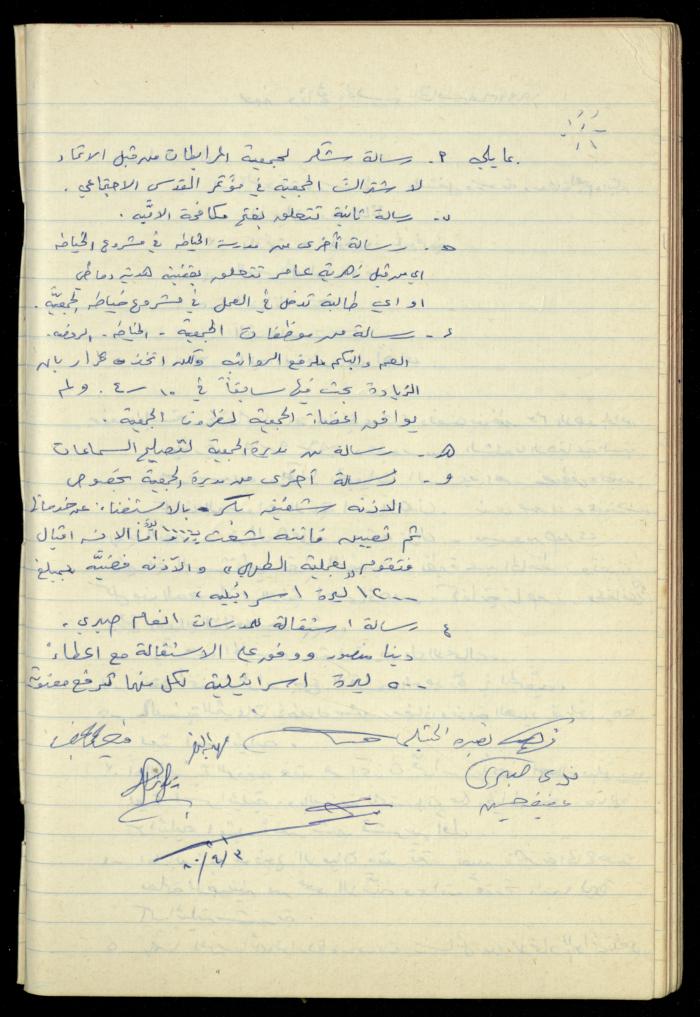 بما يلي م. رسالة شكر لجمعية المرابطات من قبل الاتحاد
لاشتراك الجمعية في مؤتمر القدس الاجتماعي.
ب- رسالة ثانية تتعلق بفتح مكافحة الاميّه.
ج. رسالة أخرى من مدرسة الخياطه في مشروع الخياطه
اي من قبل زهرية عامر تتعلق بقضية هدية
او اي طالبة تدخل في العمل في مشروع خياطه الجمعيّة.
د- رسالة من موظفات الجمعية - الخياطه - الروضه.
الصم والبكم لرفع الرواتب ولكن اتخذ قرار بان
الزيادة بحث فيها سابقاً في ولم
يوافق اعضاء الجمعية لظروف الجمعية.
هـ - رسالة من مديرة الجمعية لتصليح السماعات
و- رسالة أخرى من مديرة الجمعية بخصوص
الاذنه بالاستغناء عن خدماتها
تم تعيين فاتنه أمّا الانسه اقبال
فتقوم بعملية الطهي، والآذنه فضيّه بمبلغ
١٢٠٠ ليرة اسرائيليه،
رسالة استقالة للمدرسات انعام صبري.
دينا منصور ووفق على الاستقالة مع اعطاء
ليرة اسرائيلية لكل منها
ندى صبري
عفيفه حسين
٨٠/٤/٣